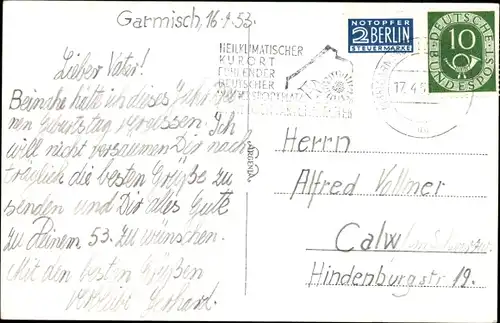 Garmisch, 16.4.53.
NOTOPFER
2 BERLIN
STEUERMARKE
DEUTSCHE BUNDESPOST
10
HEILKLIMATISCHER
KURORT
FÜHRENDER
DEUTSCHER
17.4.5
Lieber Vater!
Beinahe hätte ich dieses Jahr
nen Geburtstag vergessen. Ich
will nicht versäumen Dir nach
träglich die besten Grüße zu
senden und Dir alles Gute
zu Deinem 53. zu wünschen.
Mit den besten Grüßen
verbleibt Gerhard.
ARGENTA
Herrn
Alfred Vollmer
Calw
Hindenburgstr 12.